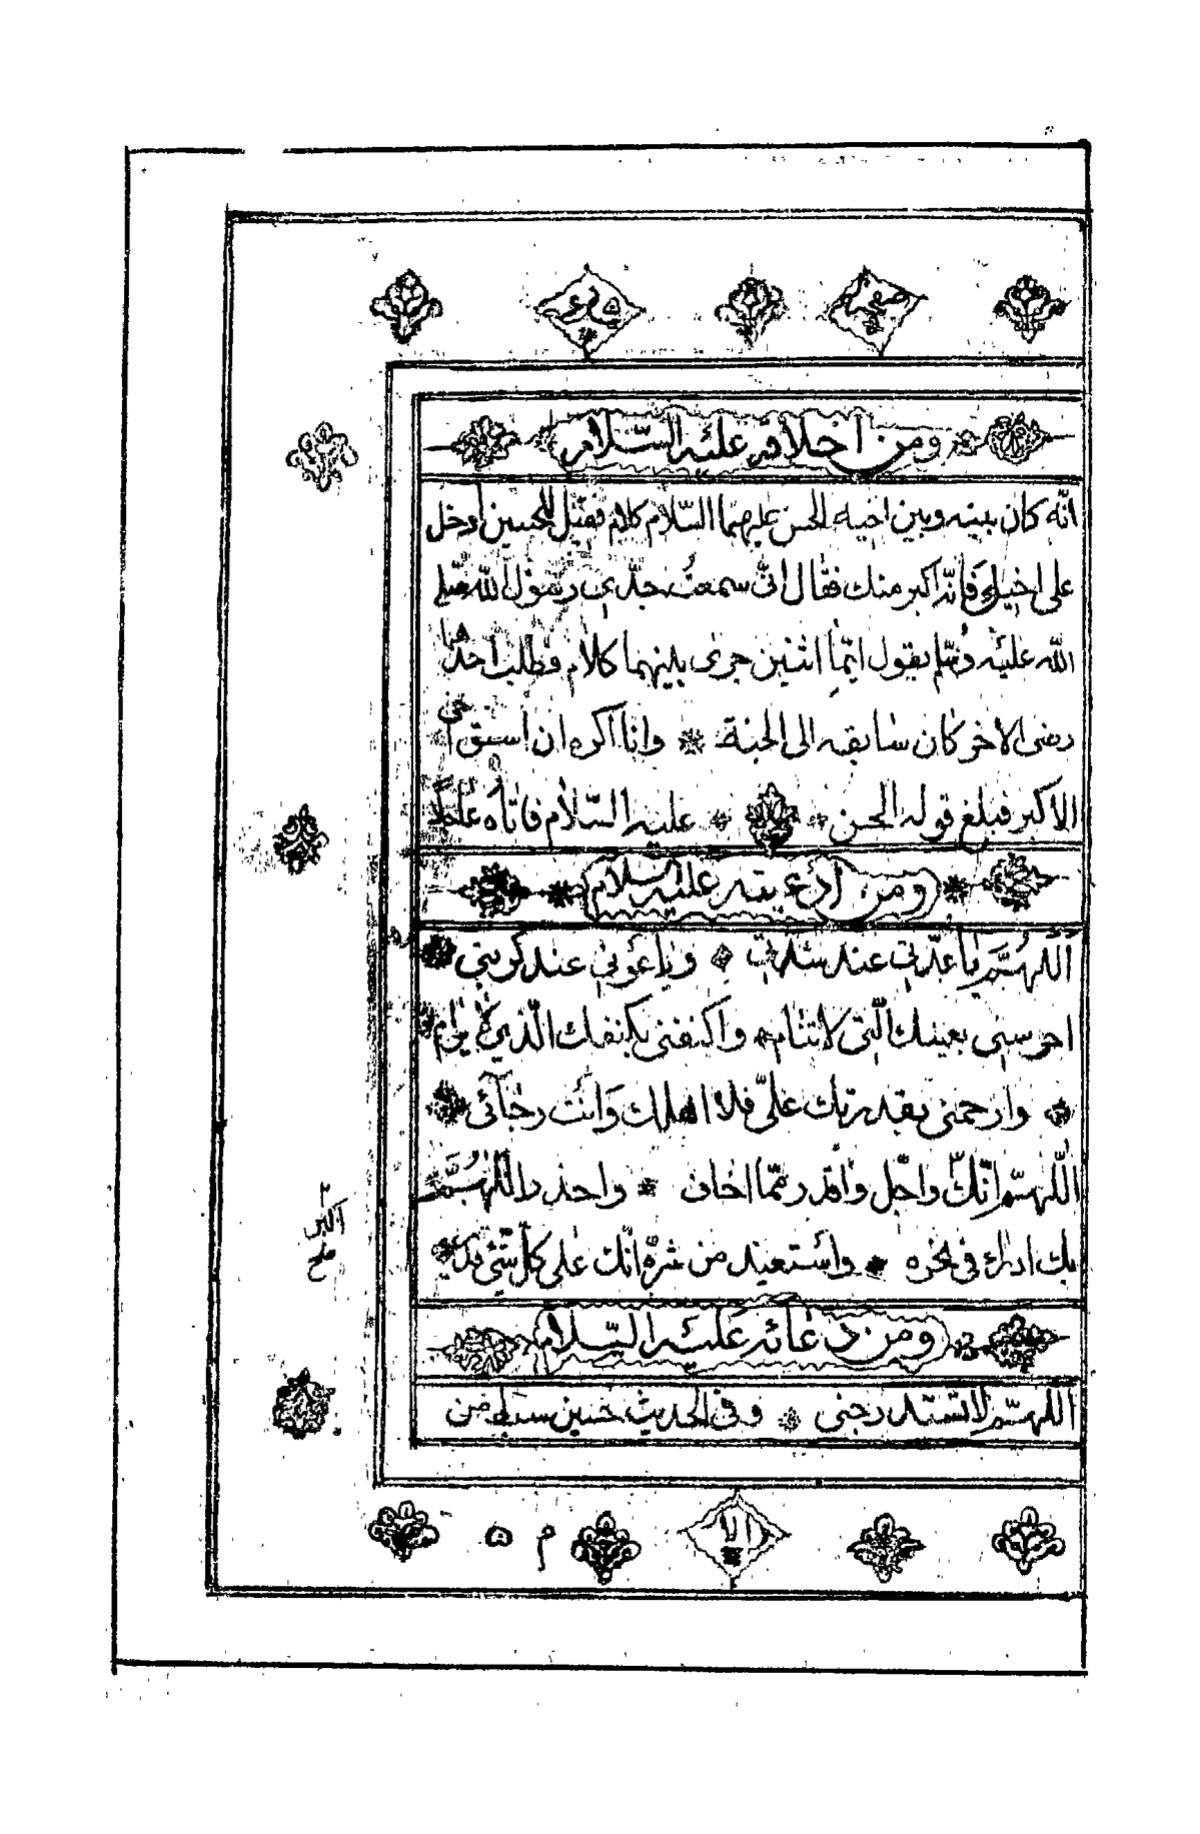 ومن اخلاقه عليه السّلام
انّه كان بينه وبين اخيه الحسن عليهما السّلام كلام فقيل للحسين أدخل
على اخيك فانّه اكبر منك فقال انّى سمعت جدّى رسول الله صلى
الله عليه وسلم يقول ايّما اثنين جرى بينهما كلام فطلب احدهما
رضى الاخر كان سابقه الى الجنة وانا اكره ان اسبق اخى
الاكبر فبلغ قوله الحسن عليه السّلام فاتاه عاجلا
ومن ادعيته عليه السلام
اللّهمّ يا عدّتى عند شدّتى ويا غوثى عند كربتى
احرسنى بعينك الّتى لا تنام واكنفنى بكنفك الّذى لا يرام
وارحمنى بقدرتك علىّ فلا اهلك وانت رجآئى
اللّهمّ انّك واجل واقدر ممّا اخاف واحذر اللّهمّ
بك ادرأ فى نحره وأستعيذ من شرّه انّك على كلّ شئ قدير
ومن دعائه عليه السّلام
اللهمّ لا تستدرجنى وفى الحديث حسين سبط من